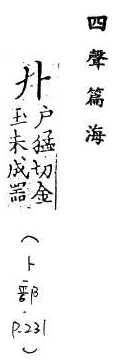 四聲篇海
卝戶猛切金
玉未成器
(卜部 P.231)